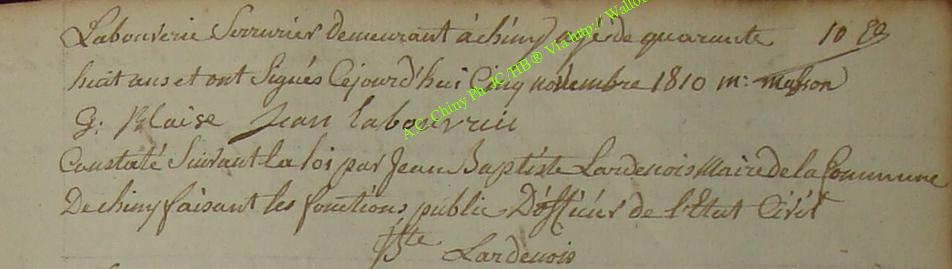 Labouverie Serrurier demeurant à chiny agé de quarante 10 Ea
huit ans et ont Signés Cejourd'hui Cinq novembre 1810 m: masson
G: Blaise Jean labouvrie
Constaté Suivant la loi par Jean Baptiste Lardenois Maire de la Commune
De chiny faisant les fonctions public D'officier de l'Etat Civil
Bte Lardenois
A.C. Chiny Ph JC HB® Via http:// Wallo